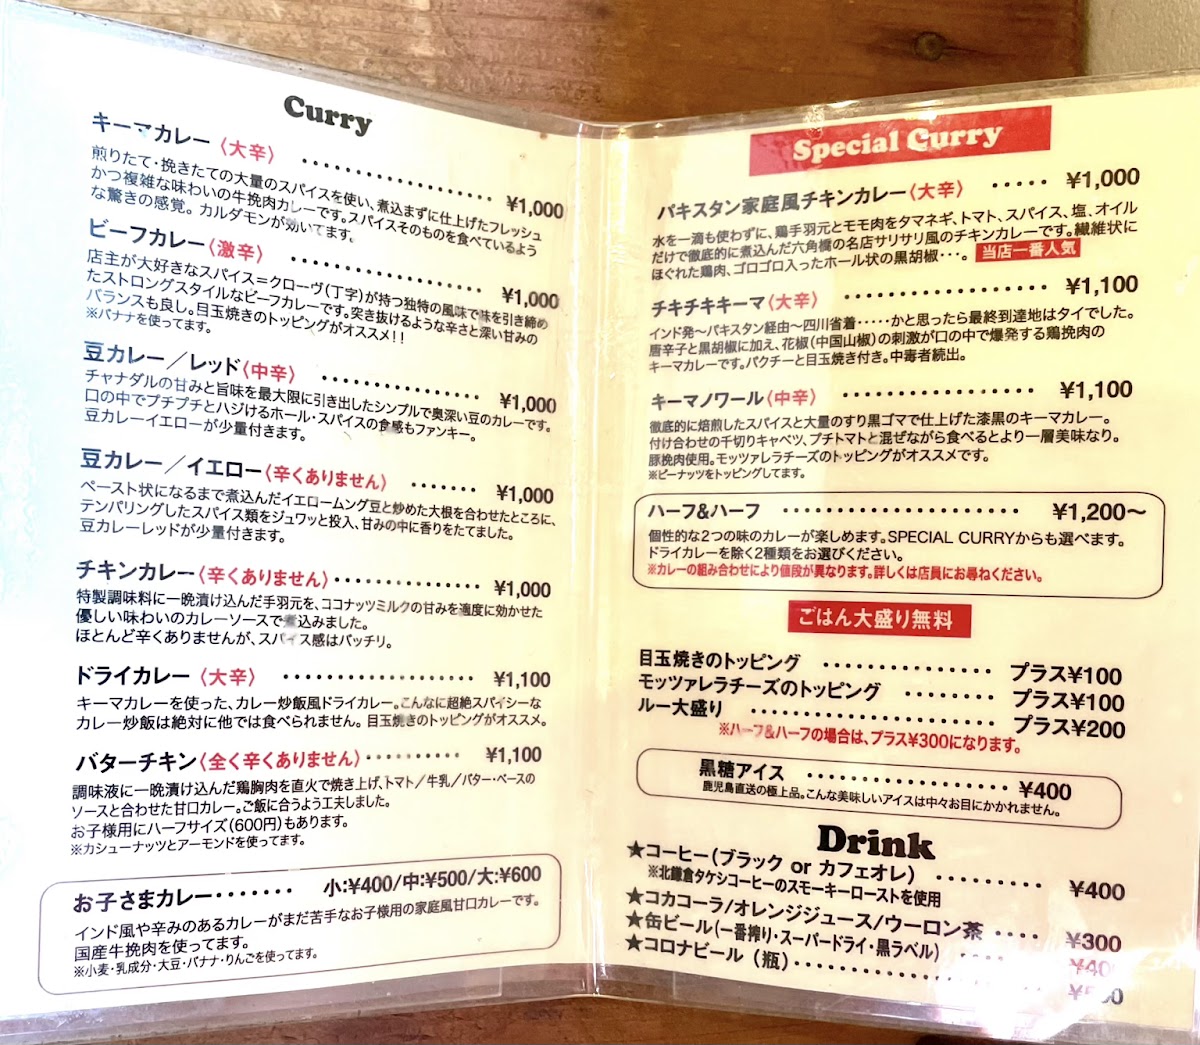 Curry
キーマカレー〈大辛〉 ・・・・・・・・・・・・・・・・ ¥1,000
煎りたて・挽きたての大量のスパイスを使い、煮込まずに仕上げたフレッシュ
かつ複雑な味わいの牛挽肉カレーです。スパイスそのものを食べているよう
な驚きの感覚。カルダモンが効いてます。
ビーフカレー〈激辛〉 ・・・・・・・・・・・・・・・・ ¥1,000
店主が大好きなスパイス＝クローヴ(丁字)が持つ独特の風味で味を引き締め
たストロングスタイルなビーフカレーです。突き抜けるような辛さと深い甘みの
バランスも良し。目玉焼きのトッピングがオススメ!!
※バナナを使ってます。
豆カレー／レッド〈中辛〉 ・・・・・・・・・・・・・ ¥1,000
チャナダルの甘みと旨味を最大限に引き出したシンプルで奥深い豆のカレーです。
口の中でプチプチとハジけるホール・スパイスの食感もファンキー。
豆カレーイエローが少量付きます。
豆カレー／イエロー〈辛くありません〉 ・・・・・・ ¥1,000
ペースト状になるまで煮込んだイエロームング豆と炒めた大根を合わせたところに、
テンパリングしたスパイス類をジュワッと投入、甘みの中に香りをたてました。
豆カレーレッドが少量付きます。
チキンカレー〈辛くありません〉・・・・・・・・・・・・ ¥1,000
特製調味料に一晩漬け込んだ手羽元を、ココナッツミルクの甘みを適度に効かせた
優しい味わいのカレーソースで煮込みました。
ほとんど辛くありませんが、スパイス感はバッチリ。
ドライカレー〈大辛〉 ・・・・・・・・・・・・・・・・ ¥1,100
キーマカレーを使った、カレー炒飯風ドライカレー。こんなに超絶スパイシーな
カレー炒飯は絶対に他では食べられません。目玉焼きのトッピングがオススメ。
バターチキン〈全く辛くありません〉・・・・・・・・・ ¥1,100
調味液に一晩漬け込んだ鶏胸肉を直火で焼き上げ、トマト／牛乳／バター・ベースの
ソースと合わせた甘口カレー。ご飯に合うよう工夫しました。
お子様用にハーフサイズ(600円)もあります。
※カシューナッツとアーモンドを使ってます。
お子さまカレー・・・・・・・ 小:¥400/中:¥500/大:¥600
インド風や辛みのあるカレーがまだ苦手なお子様用の家庭風甘口カレーです。
国産牛挽肉を使ってます。
※小麦・乳成分・大豆・バナナ・りんごを使ってます。
Special Curry
パキスタン家庭風チキンカレー〈大辛〉 ・・・・・ ¥1,000
水を一滴も使わずに、鶏手羽元とモモ肉をタマネギ、トマト、スパイス、塩、オイル
だけで徹底的に煮込んだ六角橋の名店サリサリ風のチキンカレーです。繊維状に
ほぐれた鶏肉、ゴロゴロ入ったホール状の黒胡椒・・・。 当店一番人気
チキチキキーマ〈大辛〉 ・・・・・・・・・・・・・・・・ ¥1,100
インド発〜パキスタン経由〜四川省着・・・・・かと思ったら最終到達地はタイでした。
唐辛子と黒胡椒に加え、花椒(中国山椒)の刺激が口の中で爆発する鶏挽肉の
キーマカレーです。パクチーと目玉焼き付き。中毒者続出。
キーマノワール〈中辛〉 ・・・・・・・・・・・・・・・・ ¥1,100
徹底的に焙煎したスパイスと大量のすり黒ゴマで仕上げた漆黒のキーマカレー。
付け合わせの千切りキャベツ、プチトマトと混ぜながら食べるとより一層美味なり。
豚挽肉使用。モッツァレラチーズのトッピングがオススメです。
※ピーナッツをトッピングしてます。
ハーフ&ハーフ ・・・・・・・・・・・・・・・・・・ ¥1,200〜
個性的な2つの味のカレーが楽しめます。SPECIAL CURRYからも選べます。
ドライカレーを除く2種類をお選びください。
※カレーの組み合わせにより値段が異なります。詳しくは店員にお尋ねください。
ごはん大盛り無料
目玉焼きのトッピング ・・・・・・・・・・・・・ プラス¥100
モッツァレラチーズのトッピング ・・・・・・・・ プラス¥100
ルー大盛り ・・・・・・・・・・・・・・・・・・・ プラス¥200
※ハーフ&ハーフの場合は、プラス¥300になります。
黒糖アイス ・・・・・・・・・・・・・・・・ ¥400
鹿児島直送の極上品。こんな美味しいアイスは中々お目にかかれません。
Drink
★コーヒー(ブラック or カフェオレ) ・・・・・・・・・ ¥400
※北鎌倉タケシコーヒーのスモーキーローストを使用
★コカコーラ/オレンジジュース/ウーロン茶 ・・・・ ¥300
★缶ビール(一番搾り・スーパードライ・黒ラベル) ・・・・・・ ¥400
★コロナビール(瓶)・・・・・・・・・・・・・・・・・・